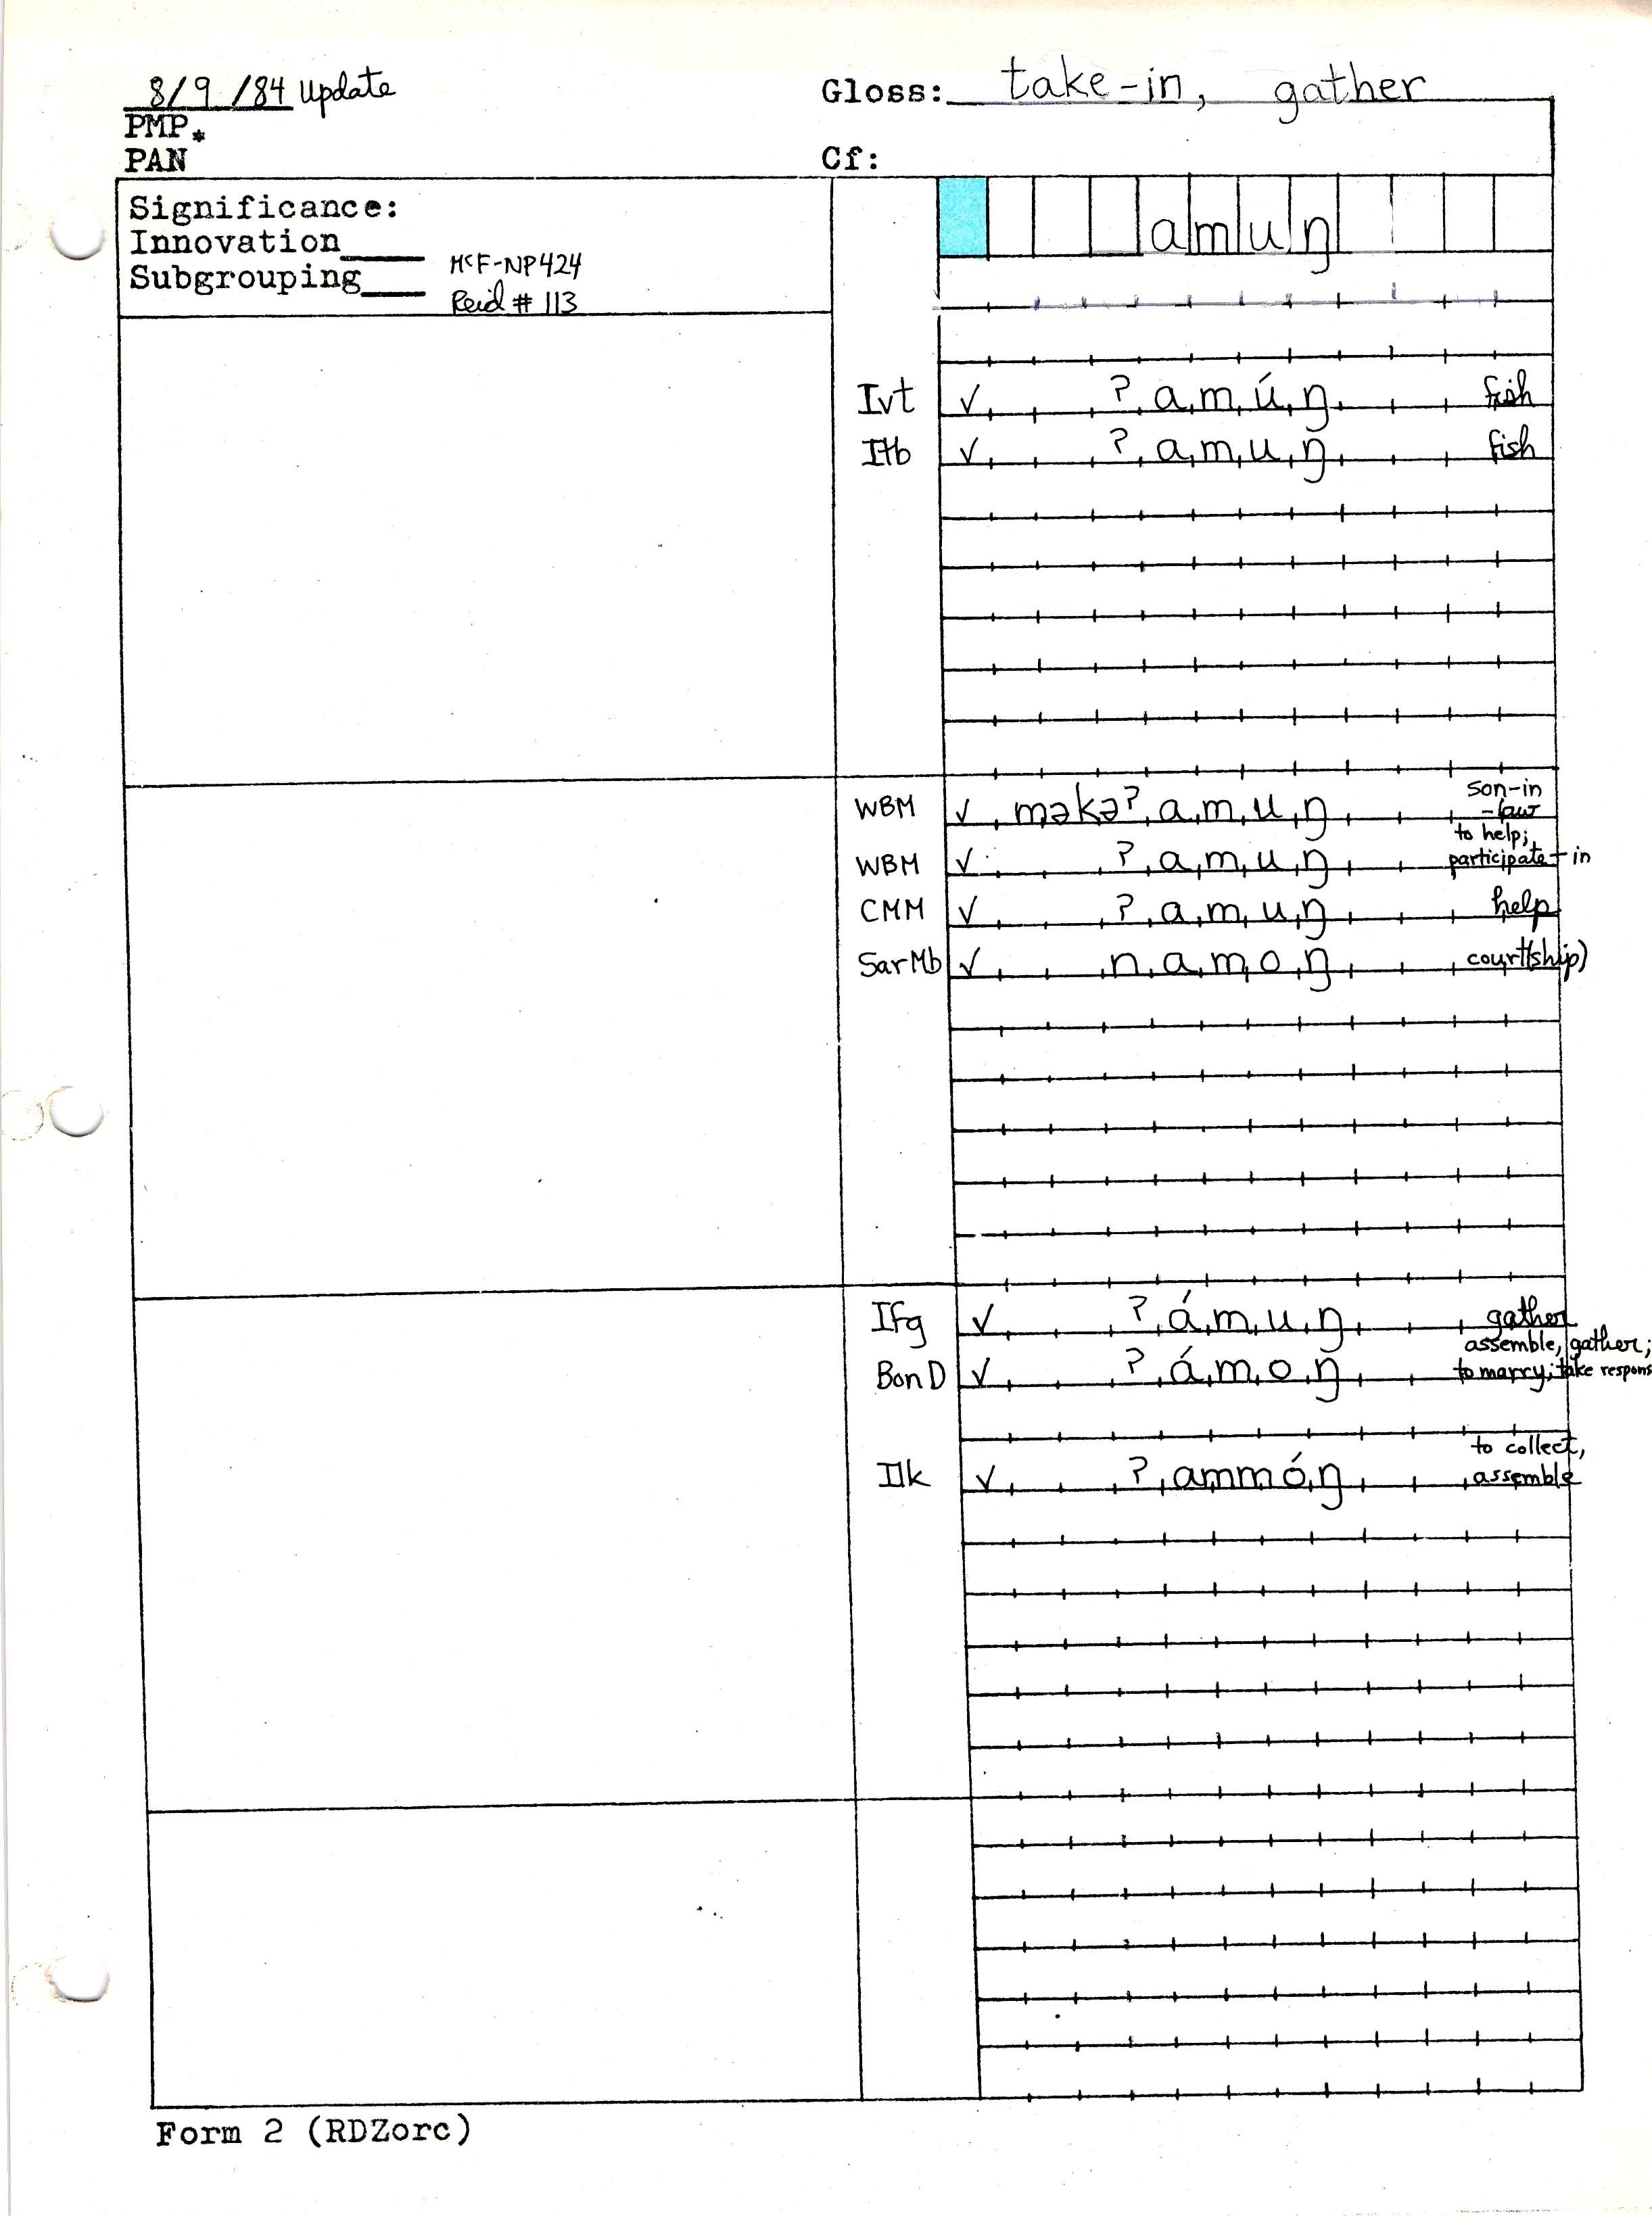 8/9/84 Update
Gloss: take-in, gather
PMP*
PAN
Cf:
Significance:
Innovation____
Subgrouping____
McF-NP424
Reid # 113
amuŋ
Ivt √ ʔamúŋ fish
Itb √ ʔamuŋ fish
WBM √ məkəʔamuŋ son-in-law
WBM √ ʔamuŋ to help; participate-in
CMM √ ʔamuŋ help
SarMb √ namoŋ court(ship)
Ifg √ ʔámuŋ gather
BonD √ ʔámoŋ assemble, gather; to marry; take respons
Ilk √ ʔammóŋ to collect, assemble
Form 2 (RDZorc)